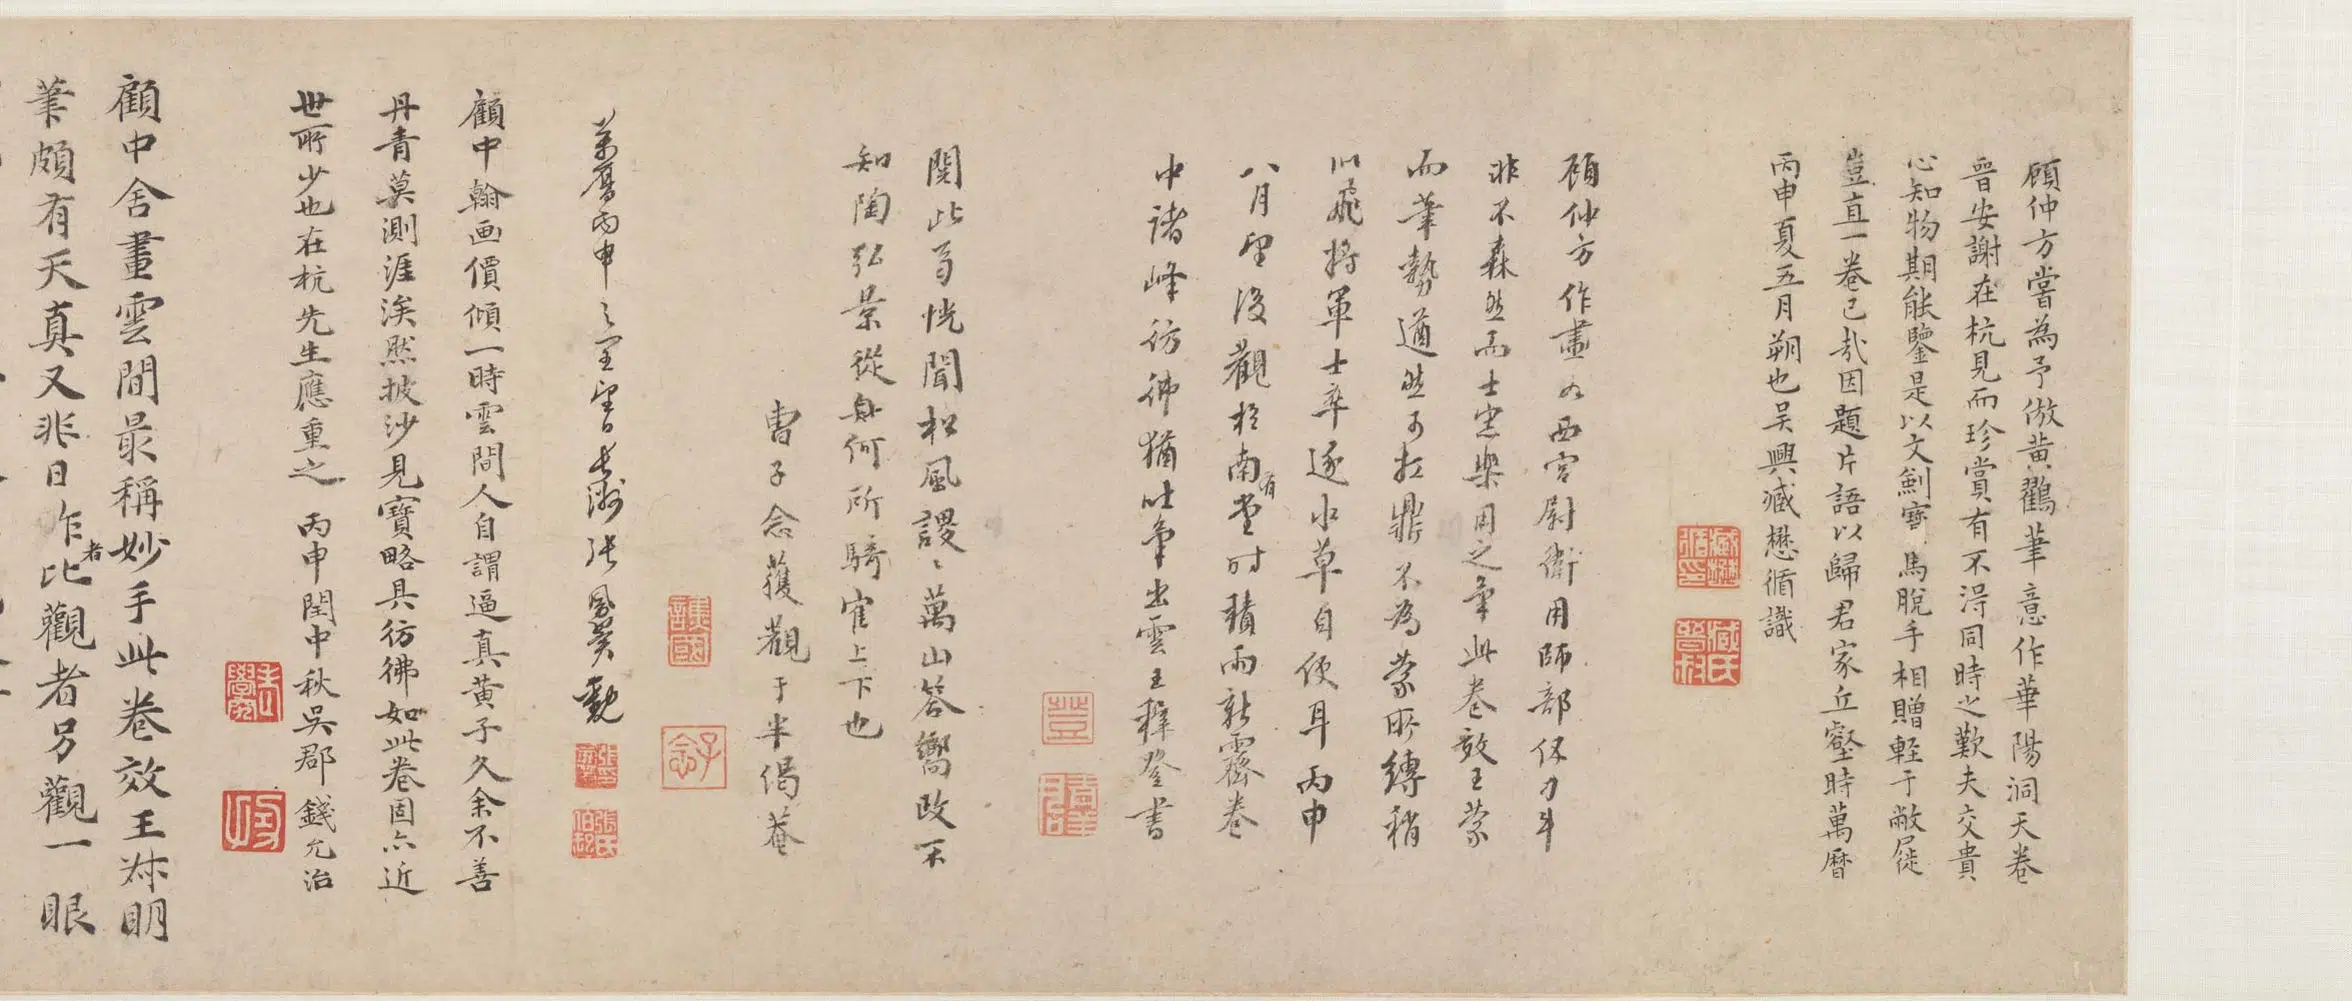 顧仲方嘗為予倣黃鶴筆意作華陽洞天卷
晉安謝在杭見而珍賞有不淂同時之歎夫交貴
心知物期能鑒是以文劍寶馬脫手相贈輕于敝屣
豈直一卷已哉因題片語以歸君家丘壑時萬曆
丙申夏五月朔也吳興臧懋循識
顧仲方作畫如西宮尉衛用師部伍刀斗
非不森然而士忘樂用之筆此卷效王蒙
而筆勢遒然可扛鼎不為蒙所縛稍
似飛將軍士卒逐水草自便耳丙申
八月望後觀於南有堂時積雨新霽卷
中諸峰彷彿猶吐筆出雲王穉登書
閱此見恍聞松風謖謖萬山答響改不
知陶弘景從身何所騎寉上下也
曹子念獲觀于半偈菴
萬曆丙申之室長洲張鳳翼觀
顧中翰画價傾一時雲間人自謂逼真黃子久余不善
丹青莫測涯涘然披沙見寶略具彷彿如此卷固亦近
世所少也在杭先生應重之 丙申閏中秋吳郡錢允治
顧中舍畫雲間最稱妙手此卷效王叔明
筆頗有天真又非日乍比者觀者另觀一眼